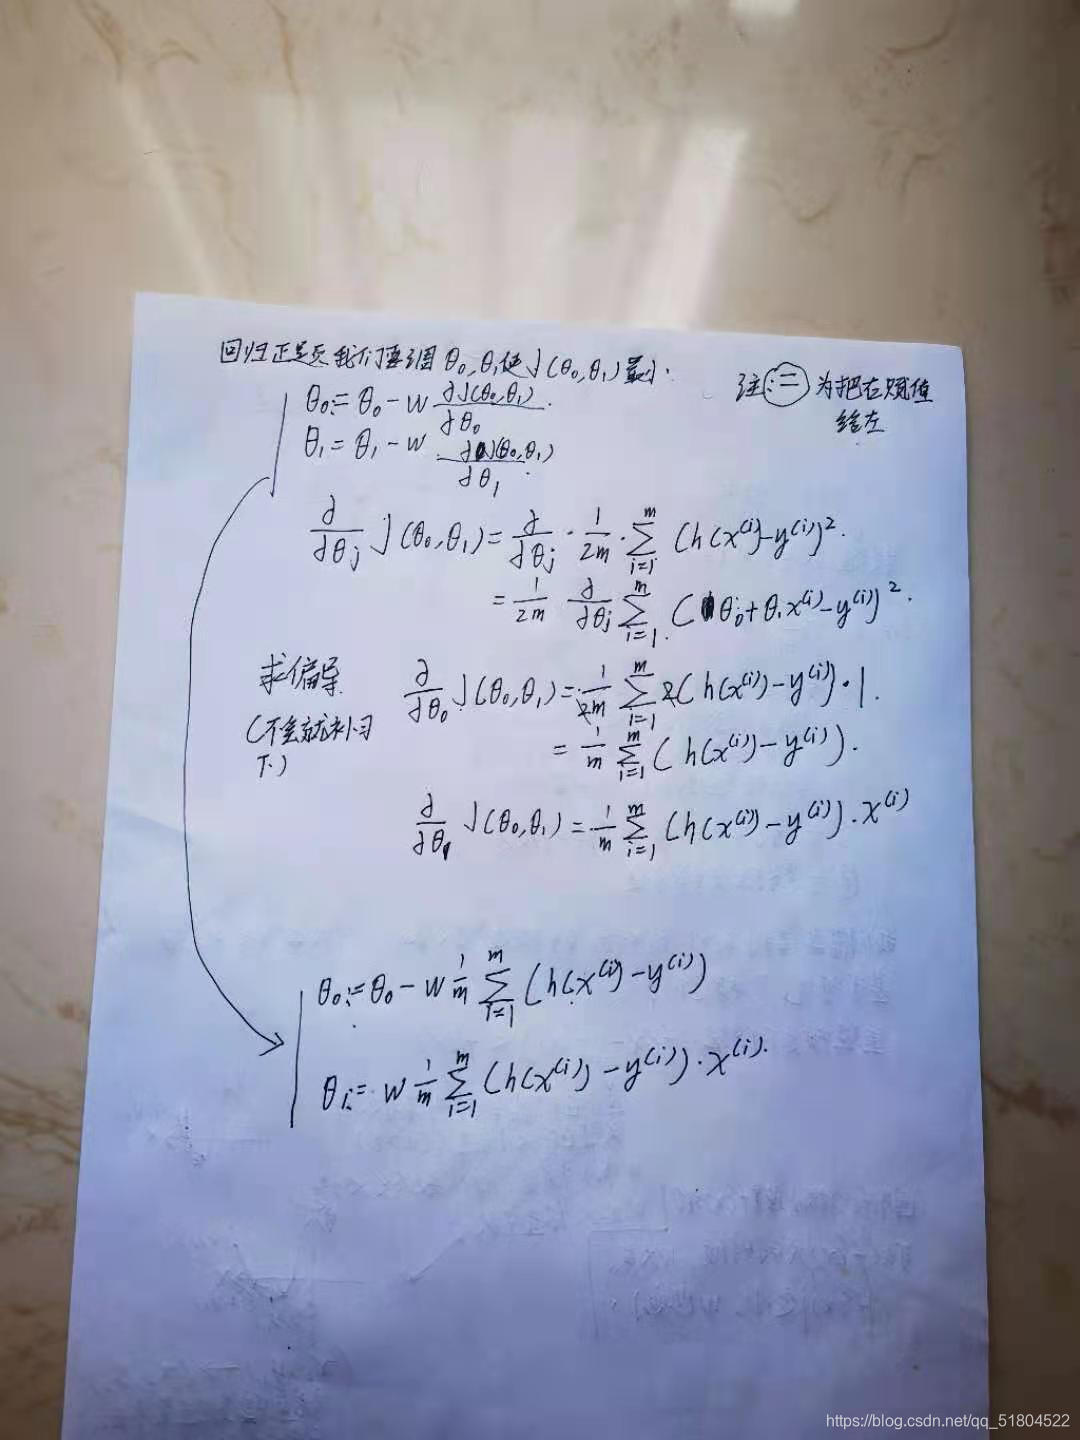 回归正题 我们要调 θ₀,θ₁使J(θ₀,θ₁)最小.
注: := 为把右赋值
给左
θ₀:= θ₀ - w ∂J(θ₀,θ₁)/∂θ₀.
θ₁ = θ₁ - w ∂J(θ₀,θ₁)/∂θ₁.
∂/∂θj J(θ₀,θ₁) = ∂/∂θj · 1/2m · ∑_{i=1}^{m} (h(x⁽ⁱ⁾)-y⁽ⁱ⁾)².
= 1/2m ∂/∂θj ∑_{i=1}^{m} (θ₀+θ₁x⁽ⁱ⁾-y⁽ⁱ⁾)².
求偏导
(不会就补习
下.)
∂/∂θ₀ J(θ₀,θ₁) = 1/2m ∑_{i=1}^{m} 2(h(x⁽ⁱ⁾)-y⁽ⁱ⁾)·1.
= 1/m ∑_{i=1}^{m} (h(x⁽ⁱ⁾)-y⁽ⁱ⁾).
∂/∂θ₁ J(θ₀,θ₁) = 1/m ∑_{i=1}^{m} (h(x⁽ⁱ⁾)-y⁽ⁱ⁾)·x⁽ⁱ⁾
θ₀:= θ₀ - w 1/m ∑_{i=1}^{m} (h(x⁽ⁱ⁾)-y⁽ⁱ⁾)
θ₁:= w 1/m ∑_{i=1}^{m} (h(x⁽ⁱ⁾)-y⁽ⁱ⁾)·x⁽ⁱ⁾.
https://blog.csdn.net/qq_51804522